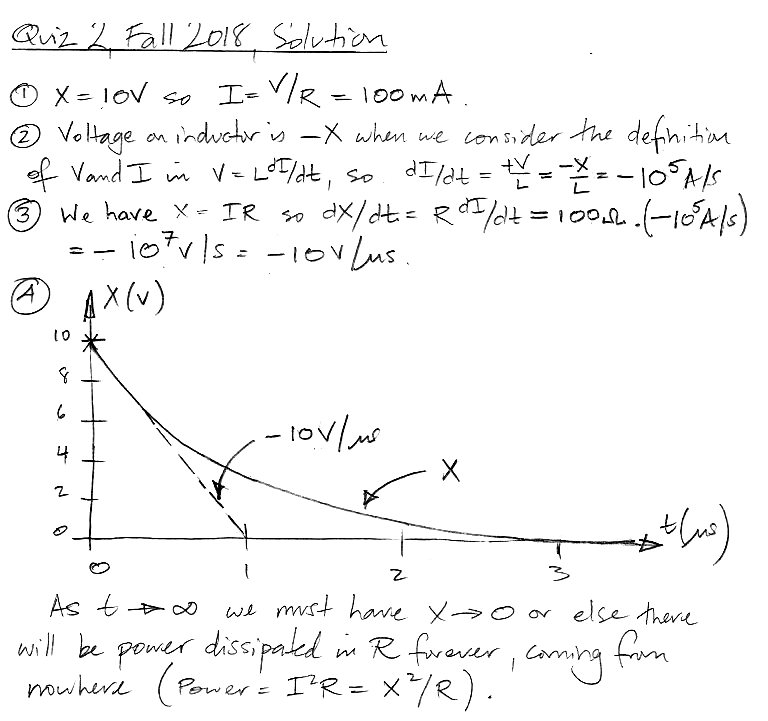 Quiz 2, Fall 2018, Solution
① X = 10V so I = V/R = 100mA.
② Voltage on inductor is -X when we consider the definition
of V and I in V = L dI/dt, so dI/dt = +V/L = -X/L = -10⁵ A/s
③ We have X = IR so dX/dt = R dI/dt = 100Ω.(-10⁵A/s)
= -10⁷V/s = -10V/μs.
④ X(V)
10
8
6
4
2
0
-10V/μs
X
t(μs)
0 1 2 3
As t → ∞ we must have X → 0 or else there
will be power dissipated in R forever, coming from
nowhere (Power = I²R = X²/R).